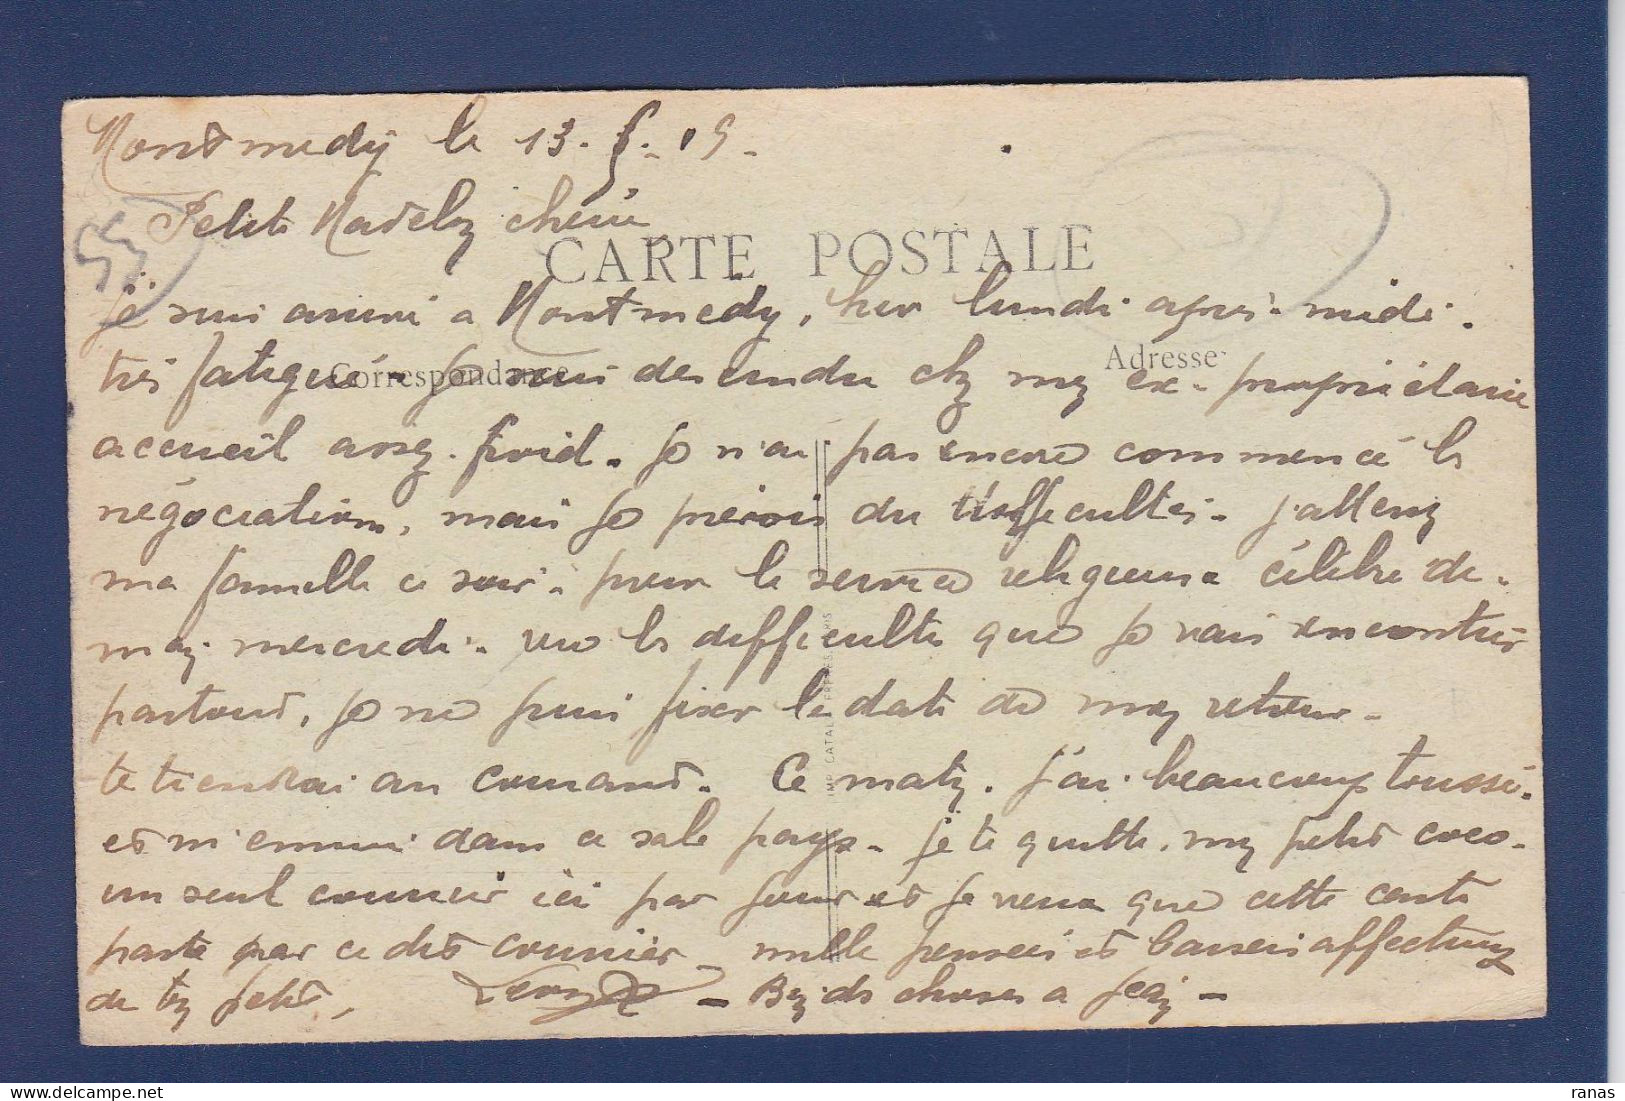 Montmedy le 13. . 19 -
Petite Madelon chérie
CARTE POSTALE
Je suis arrivé a Montmedy, hier lundi après-midi.
Correspondance
Adresse
très fatigué - Je suis descendu chez mon ex-propriétaire
accueil assez froid. Je n'ai pas encore commencé les
négociations, mais je prévois des difficultés. J'attens
ma famille ce soir - pour le service religieux célébré de-
main mercredi - vu les difficultés que je vais rencontrer
partout, je ne puis fixer la date de mon retour -
te tiendrai au courant. Ce matin. j'ai beaucoup toussé.
et m'ennui dans ce sale pays. Je te quitte, mon petit coco.
un seul courrier ici par jour et je veux que cette carte
parte par ce dit courrier - mille pensées et baisers affectueux
de ton petit, - Bien des choses a
IMP CATALA FRERES PARIS
55
ranas